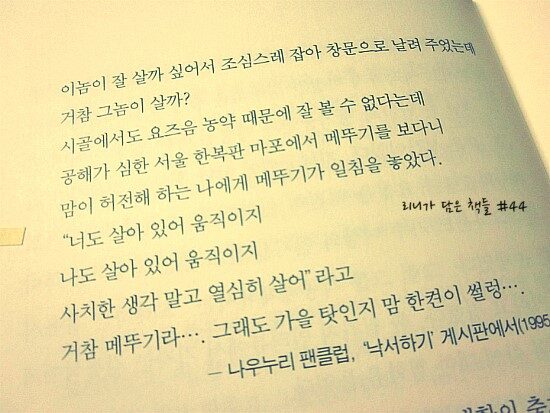 이놈이 잘 살까 싶어서 조심스레 잡아 창문으로 날려 주었는데
거참 그놈이 살까?
시골에서도 요즈음 농약 때문에 잘 볼 수 없다는데
공해가 심한 서울 한복판 마포에서 메뚜기를 보다니
맘이 허전해 하는 나에게 메뚜기가 일침을 놓았다.
리니가 담은 책들 #44
“너도 살아 있어 움직이지
나도 살아 있어 움직이지
사치한 생각 말고 열심히 살어”라고
거참 메뚜기라…. 그래도 가을 탓인지 맘 한켠이 썰렁….
– 나우누리 팬클럽, ‘낙서하기’ 게시판에서(1995